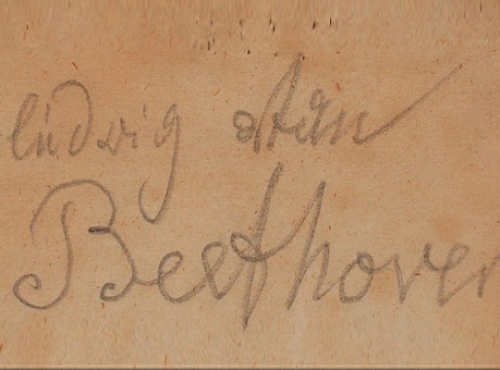 ludwig
Beethoven